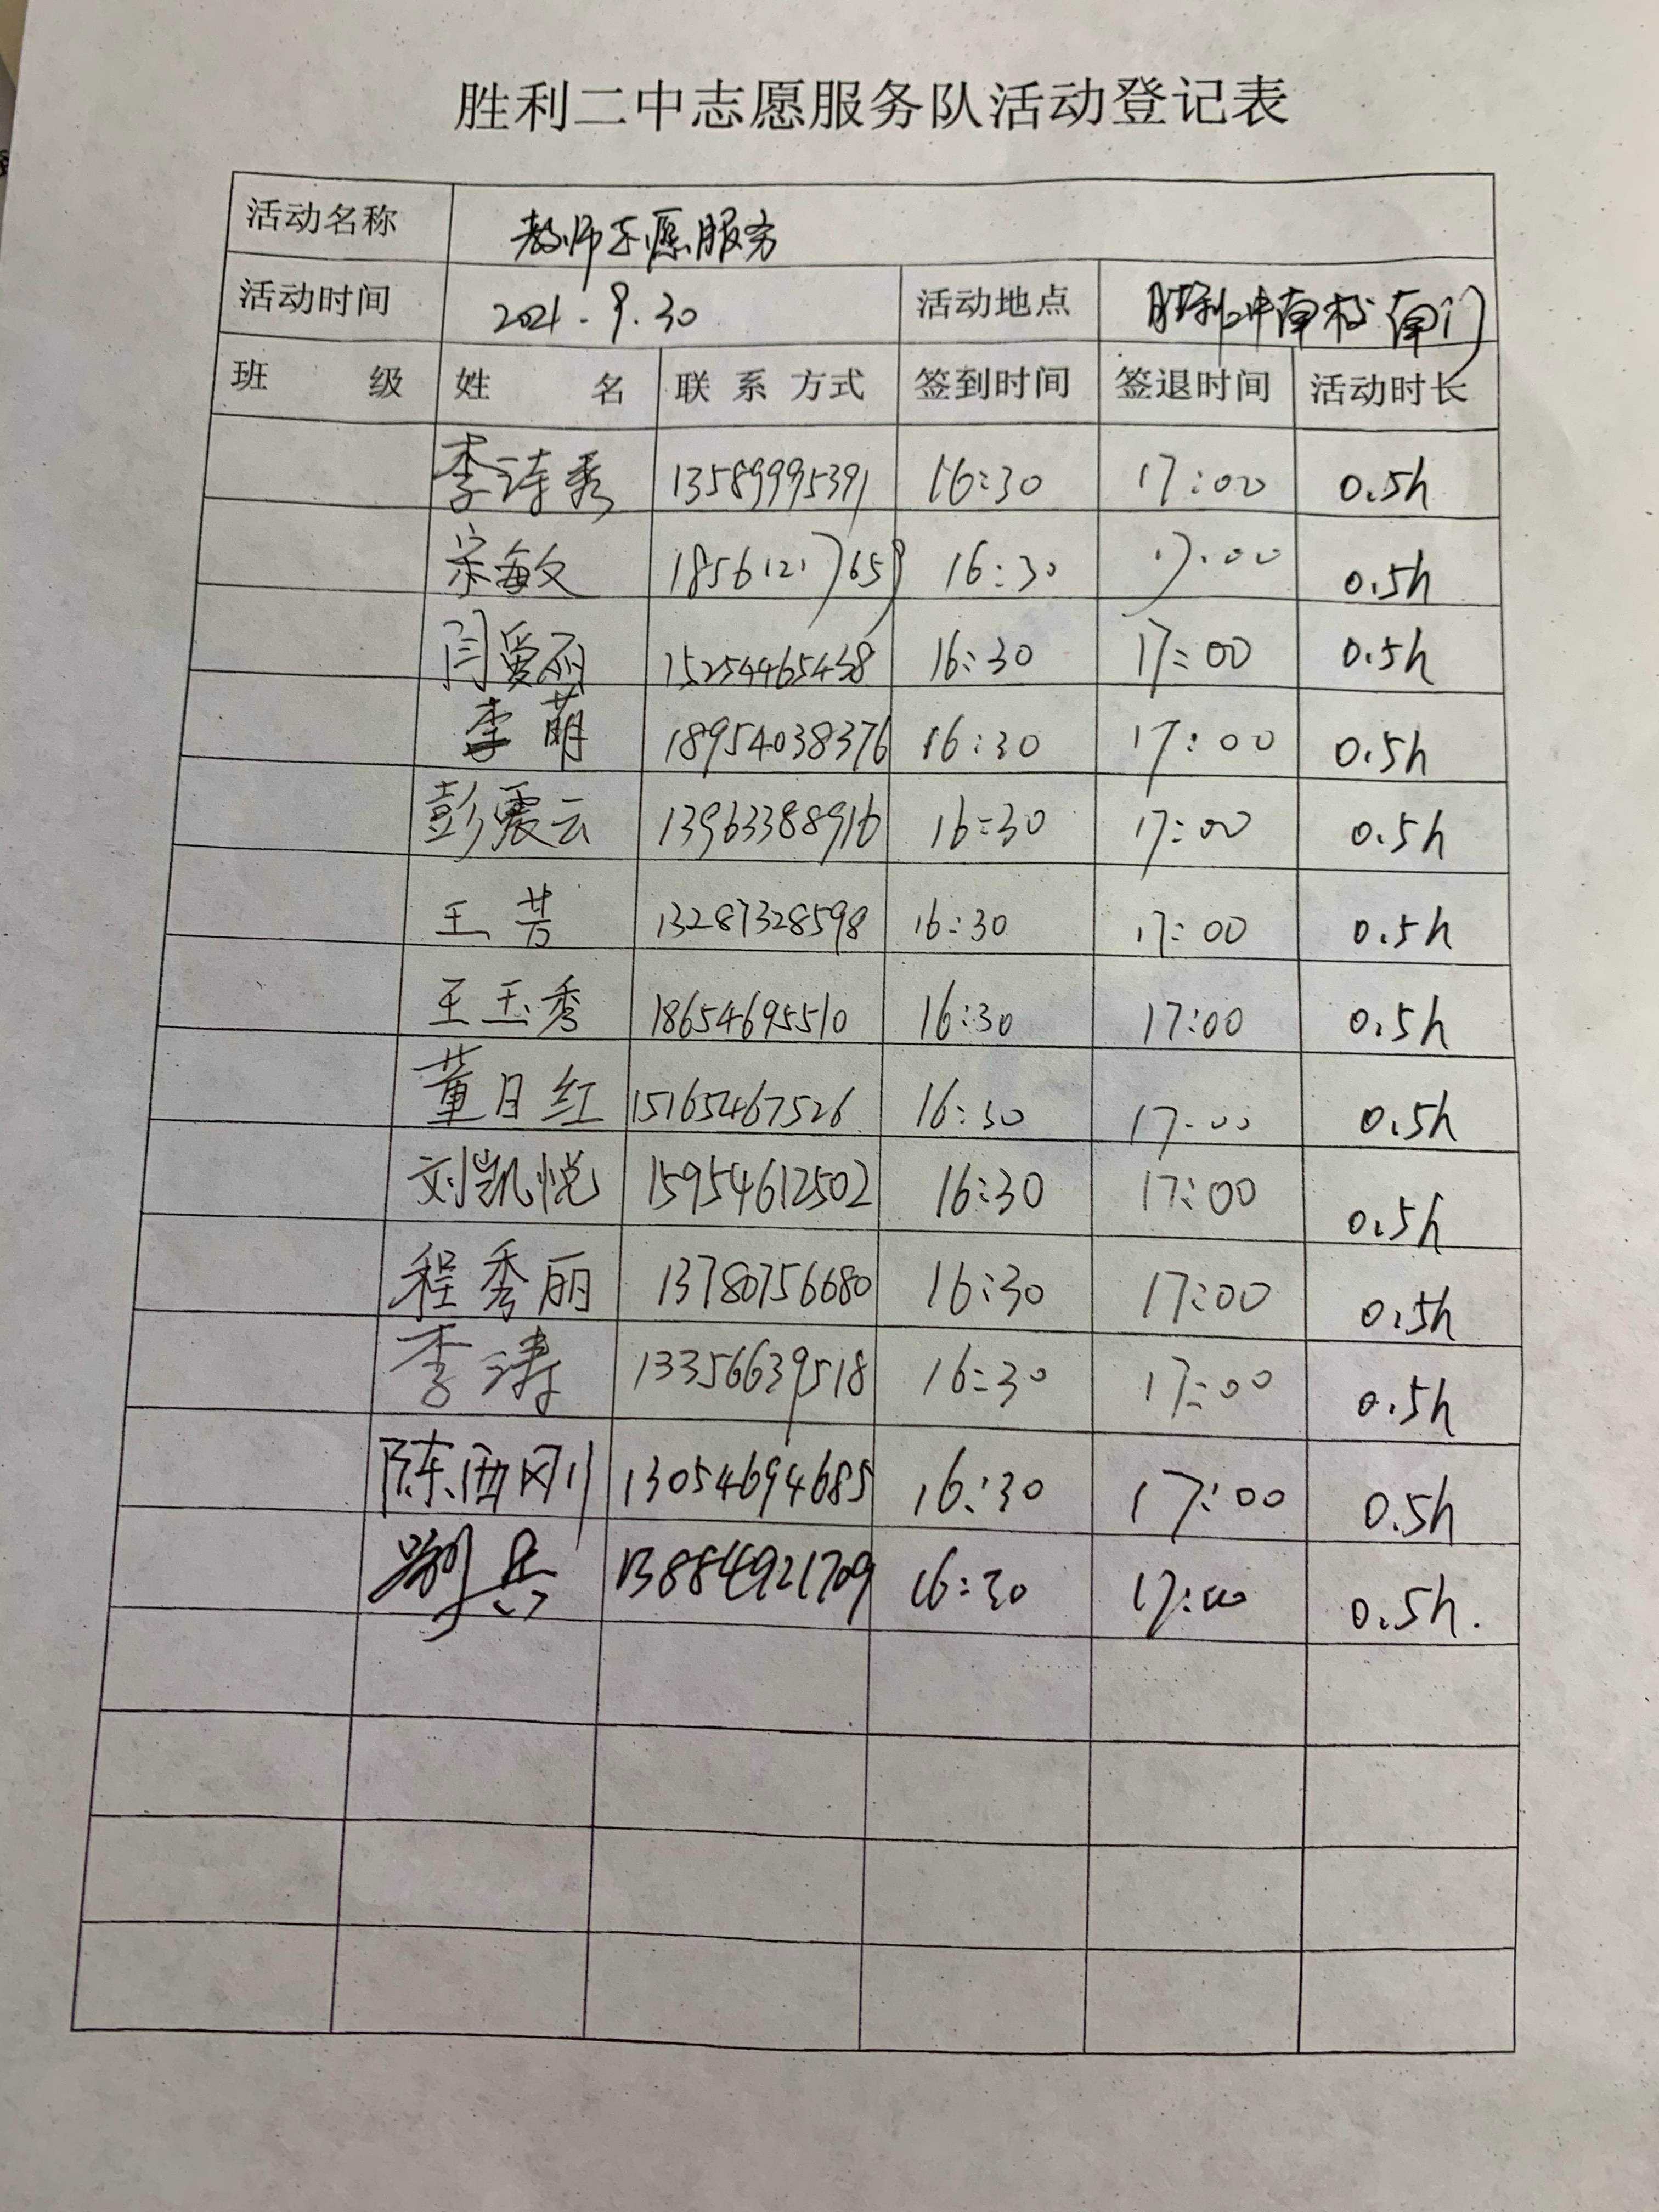 胜利二中志愿服务队活动登记表
活动名称 教师志愿服务
活动时间 2021.9.30 活动地点 胜利二中南校南门
班级 姓名 联系方式 签到时间 签退时间 活动时长
李诗秀 13589995391 16:30 17:00 0.5h
宗敏文 18561217659 16:30 17:00 0.5h
闫爱丽 15254465438 16:30 17:00 0.5h
李萌 18954038376 16:30 17:00 0.5h
彭震云 13963388916 16:30 17:00 0.5h
王芳 13287328598 16:30 17:00 0.5h
王玉秀 18654695510 16:30 17:00 0.5h
董日红 15165467526 16:30 17:00 0.5h
刘凯悦 15954612502 16:30 17:00 0.5h
程秀丽 13780756680 16:30 17:00 0.5h
李涛 13356639518 16:30 17:00 0.5h
陈西刚 13054694685 16:30 17:00 0.5h
兵 13884921709 16:30 17:00 0.5h.